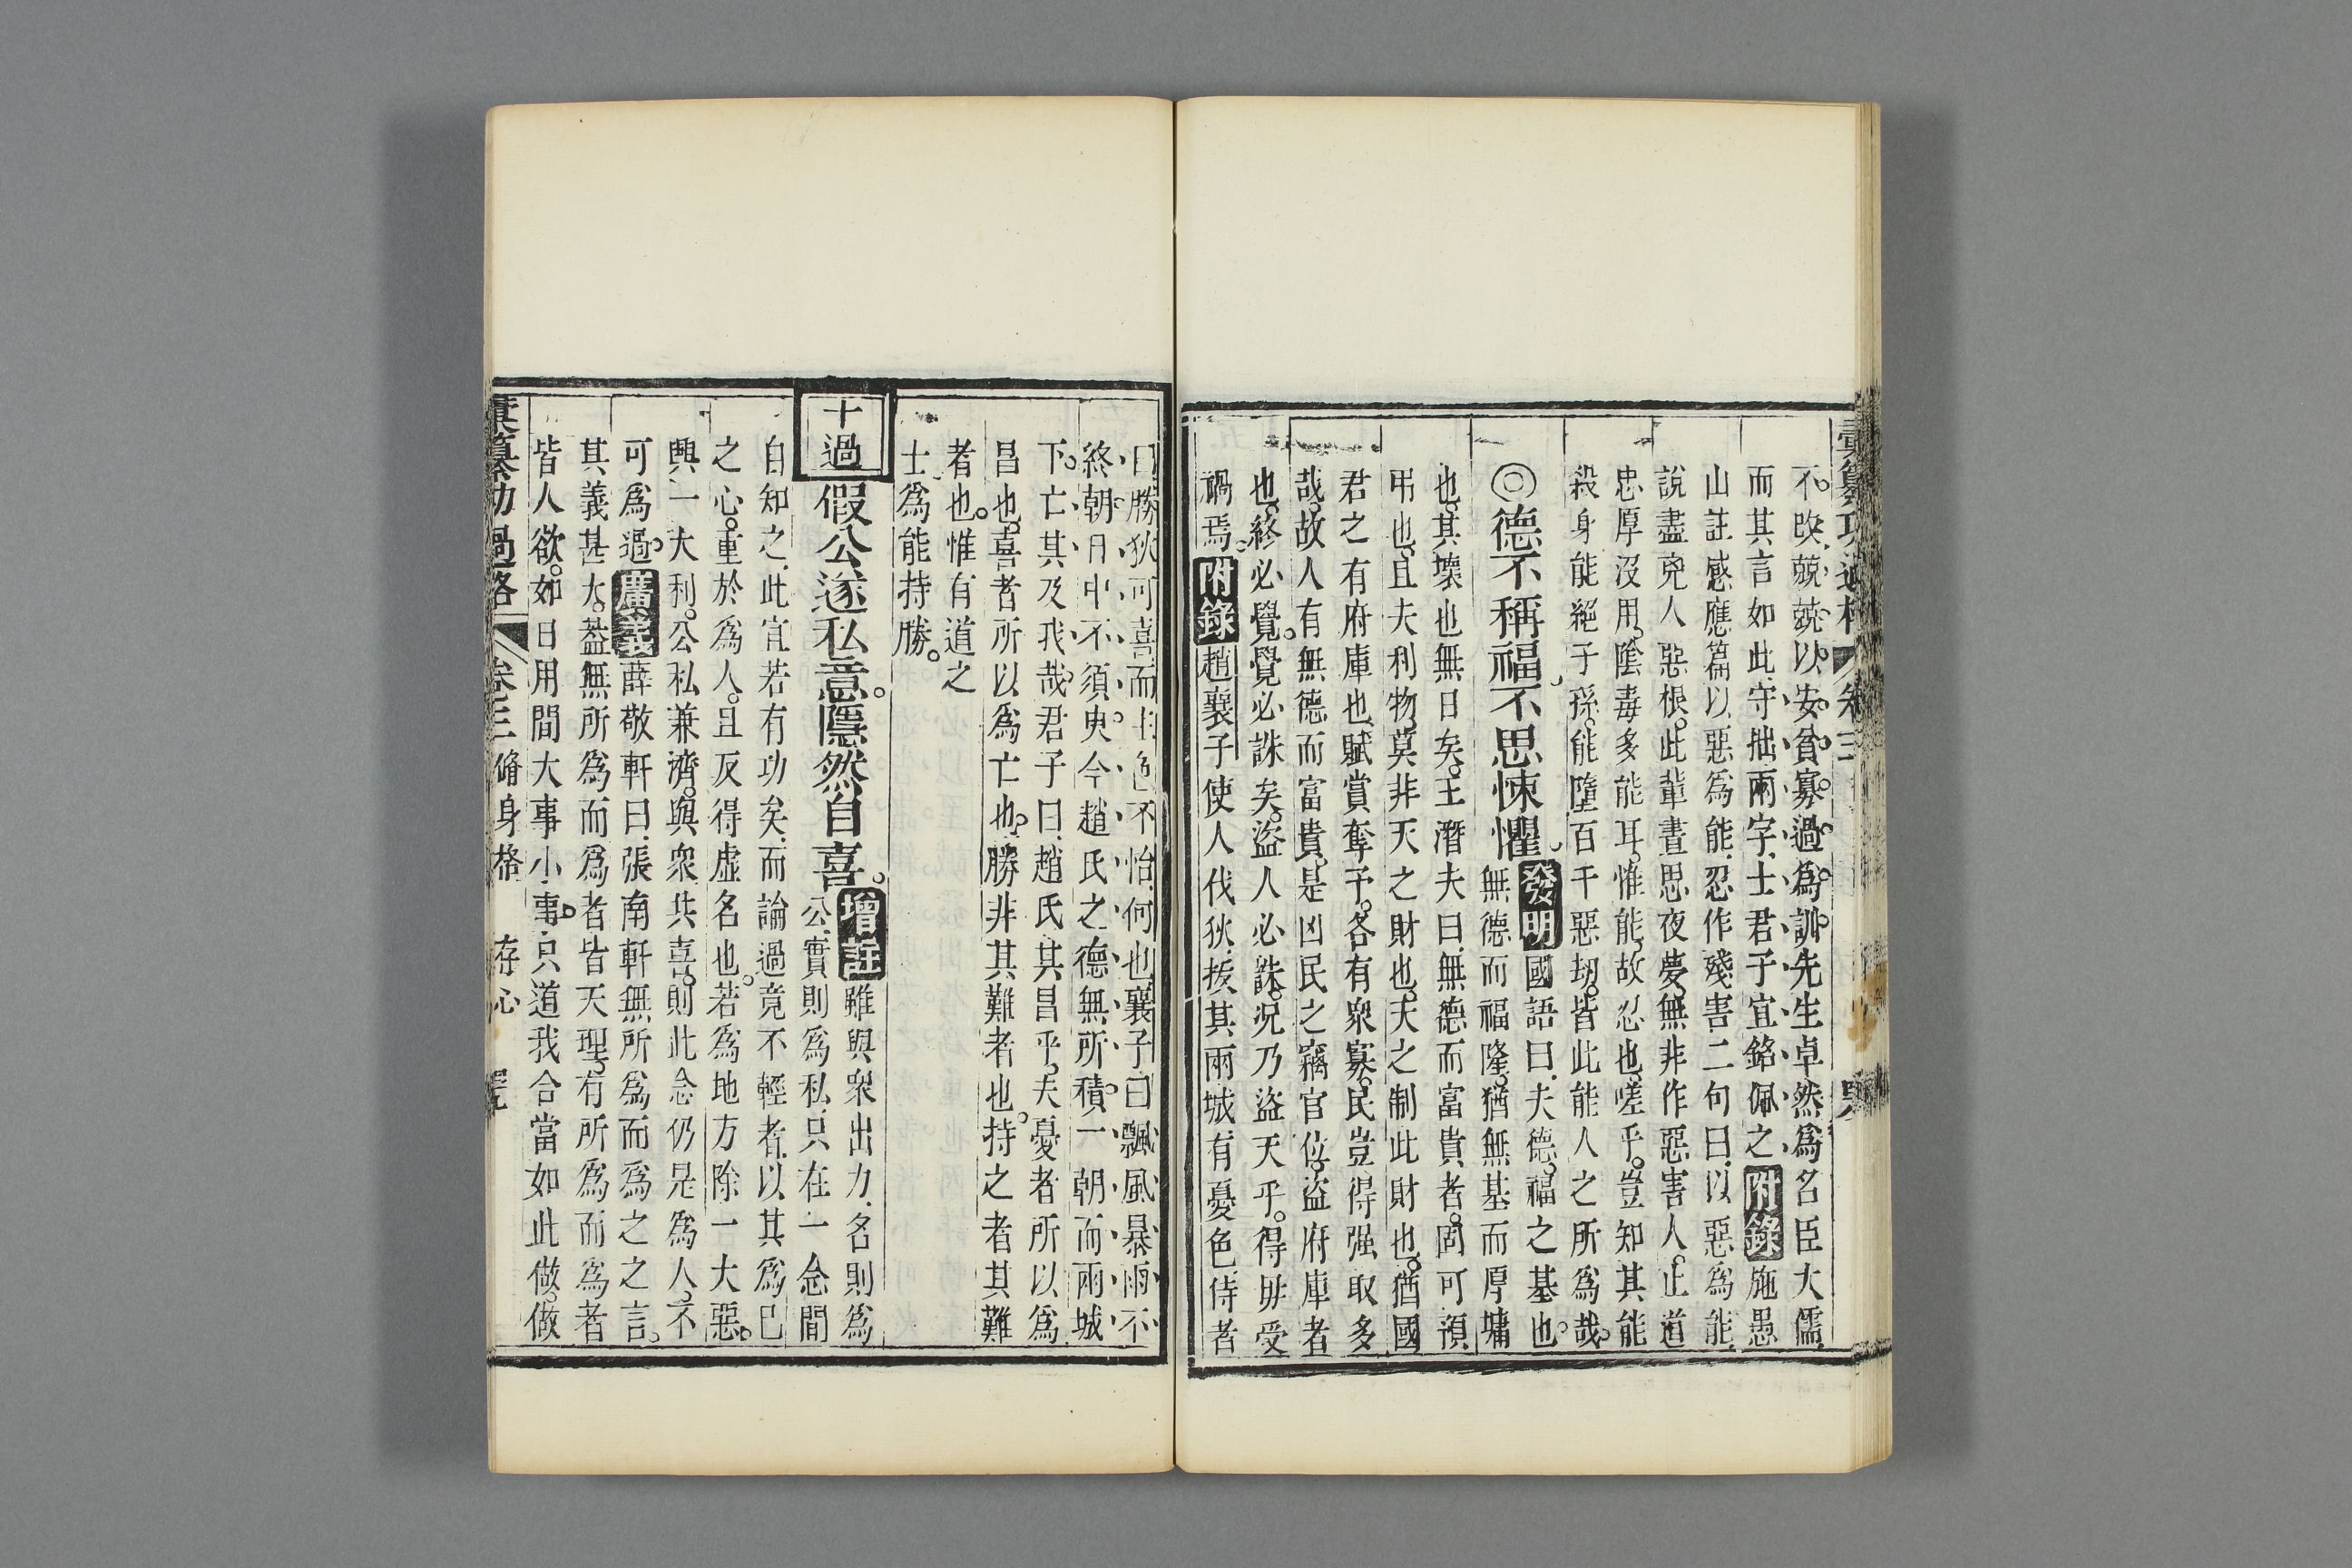 彙纂功過格 卷三
不。改兢兢以安貧寡過為訓先生卓然為名臣大儒
而其言如此守拙兩字士君子宜銘佩之附錄施愚
山註感應篇以惡為能忍作殘害二句曰以惡為能
說盡兇人惡根。此輩晝思夜夢無非作惡害人。止道
忠厚沒用。陰毒多能耳。惟能故忍也。嗟乎。豈知其能
殺身能絕子孫。能墮百千惡劫。皆此能人之所為哉。
◎德不稱福。不思悚懼。發明國語曰。夫德。福之基也。
無德而福隆。猶無基而厚墉
也。其壞也無日矣。王潛夫曰無德而富貴者。固可預
弔也。且夫利物莫非天之財也。天之制此財也。猶國
君之有府庫也。賦賞奪予。各有衆寡。民豈得强取多
哉。故人有無德而富貴。是凶民之竊官位。盜府庫者
也。終必覺。覺必誅矣。盜人必誅。況乃盜天乎。得毋受
禍焉。附錄趙襄子使人伐狄拔其兩城有憂色侍者
曰勝狄可喜而主色不怡何也襄子曰飄風暴雨不
終朝日中不須臾今趙氏之德無所積一朝而兩城
下。亡其及我哉。君子曰趙氏其昌乎。夫憂者所以為
昌也。喜者所以為亡也。勝非其難者也。持之者其難
者也。惟有道之
士為能持勝。
十過 假公遂私意。隱然自喜。增註雖與衆出力名則為
公實則為私只在一念間
自知之此宜若有功矣而論過竟不輕者以其為已
之心。重於為人。且反得虛名也。若為地方除一大惡。
興一大利。公私兼濟。與衆共喜。則此念仍是為人。不
可為過。廣義薛敬軒曰張南軒無所為而為之之言。
其義甚大。葢無所為而為者皆天理。有所為而為者
皆人欲。如日用間大事小事只道我合當如此做。做
彙纂功過格 卷三 脩身格 存心